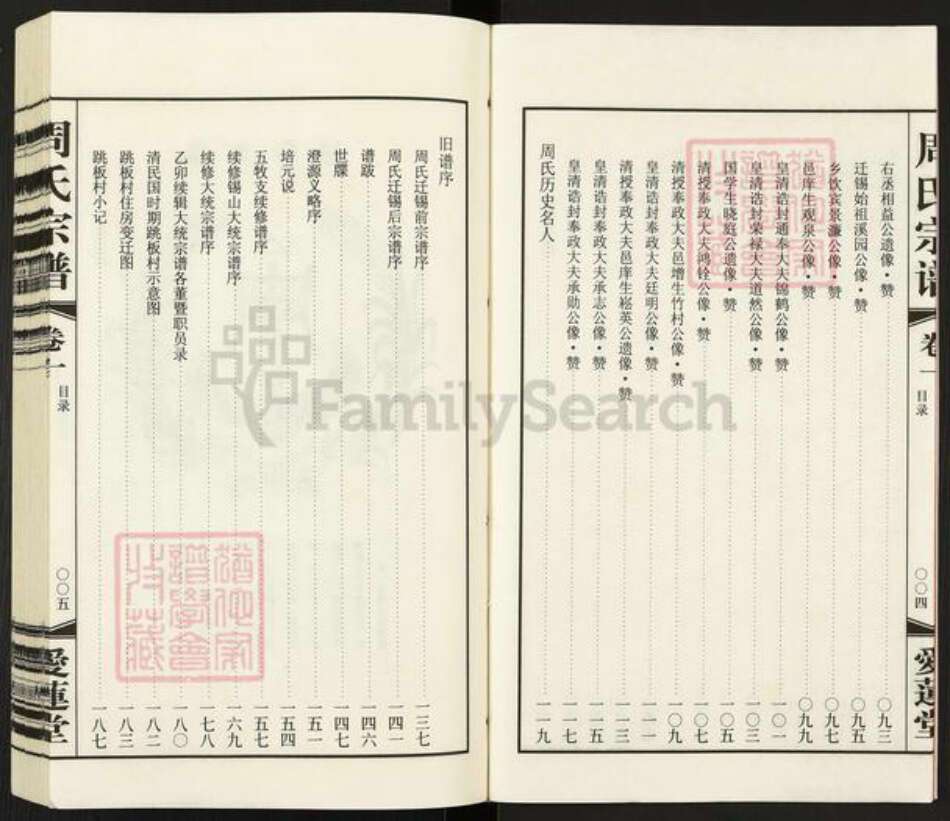 周氏宗谱 卷一 目录 〇〇四 愛蓮堂
右丞相益公遗像·赞 〇九三
迁锡始祖溪园公像·赞 〇九五
乡饮宾景濂公像·赞 〇九七
邑庠生观泉公像·赞 〇九九
皇清诰封通奉大夫锦鹤公像·赞 一〇一
皇清诰封荣禄大夫道然公像·赞 一〇三
国学生晓庭公遗像·赞 一〇五
清授奉政大夫鸿铨公像·赞 一〇七
清授奉政大夫邑增生竹村公像·赞 一〇九
皇清诰封奉政大夫廷明公像·赞 一一一
清授奉政大夫邑庠生崧英公遗像·赞 一一三
皇清诰封奉政大夫承志公像·赞 一一五
皇清诰封奉政大夫承勋公像·赞 一一七
周氏历史名人 一一九
旧谱序
周氏迁锡前宗谱序 一三七
周氏迁锡后宗谱序 一四一
谱跋 一四六
世牒 一四七
澄源义略序 一五一
培元说 一五四
五牧支续修谱序 一五七
续修锡山大统宗谱序 一六九
续修大统宗谱序 一七八
乙卯续辑大统宗谱各董暨职员录 一八〇
清民国时期跳板村示意图 一八二
跳板村住房变迁图 一八三
跳板村小记 一八七
周氏宗谱 卷一 目录 〇〇五 愛蓮堂
FamilySearch